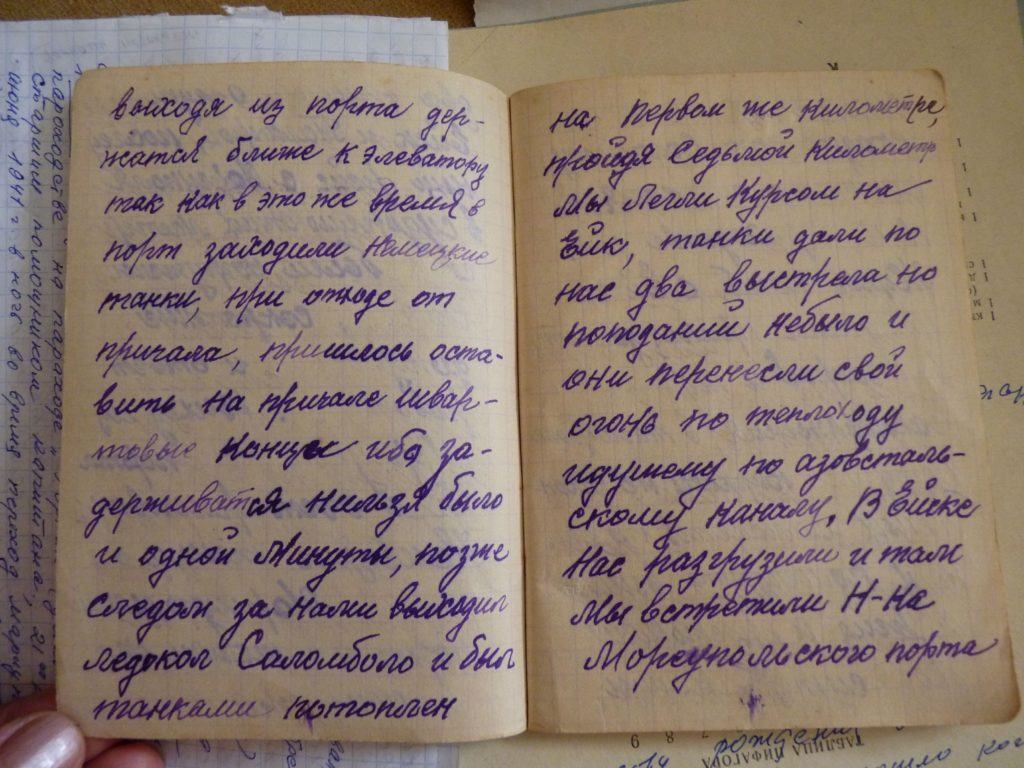 выходя из порта дер-
жатся ближе к элеватору
так как в это же время в
порт заходили немецкие
танки, при отходе от
причала, пришлось оста-
вить на причале швар-
товые концы ибо за-
держиватся нильзя было
и одной минуты, позже
следом за нами выходил
ледокол Саломбало и был
танками потоплен
на первом же километре,
пройдя седьмой километр
мы легли курсом на
Ейк, танки дали по
нас два выстрела но
поподаний небыло и
они перенесли свой
огонь по теплоходу
идущему по азовсталь-
скому каналу. В Ейске
нас разгрузили и там
мы встретили Н-на
Мореупольского порта
пароходстве на пароходе
старшим помощником капитана, 21
июня 1941 г в ночь во время переход
рождения
ТАБЛИЦА ПИФАГОРА
7 8 9